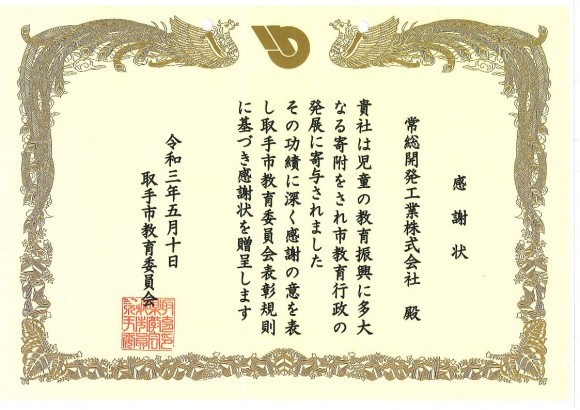 感謝状
常総開発工業株式会社 殿
貴社は児童の教育振興に多大
なる寄附をされ市教育行政の
発展に寄与されました
その功績に深く感謝の意を表
し取手市教育委員会表彰規則
に基づき感謝状を贈呈します
令和三年五月十日
取手市教育委員会